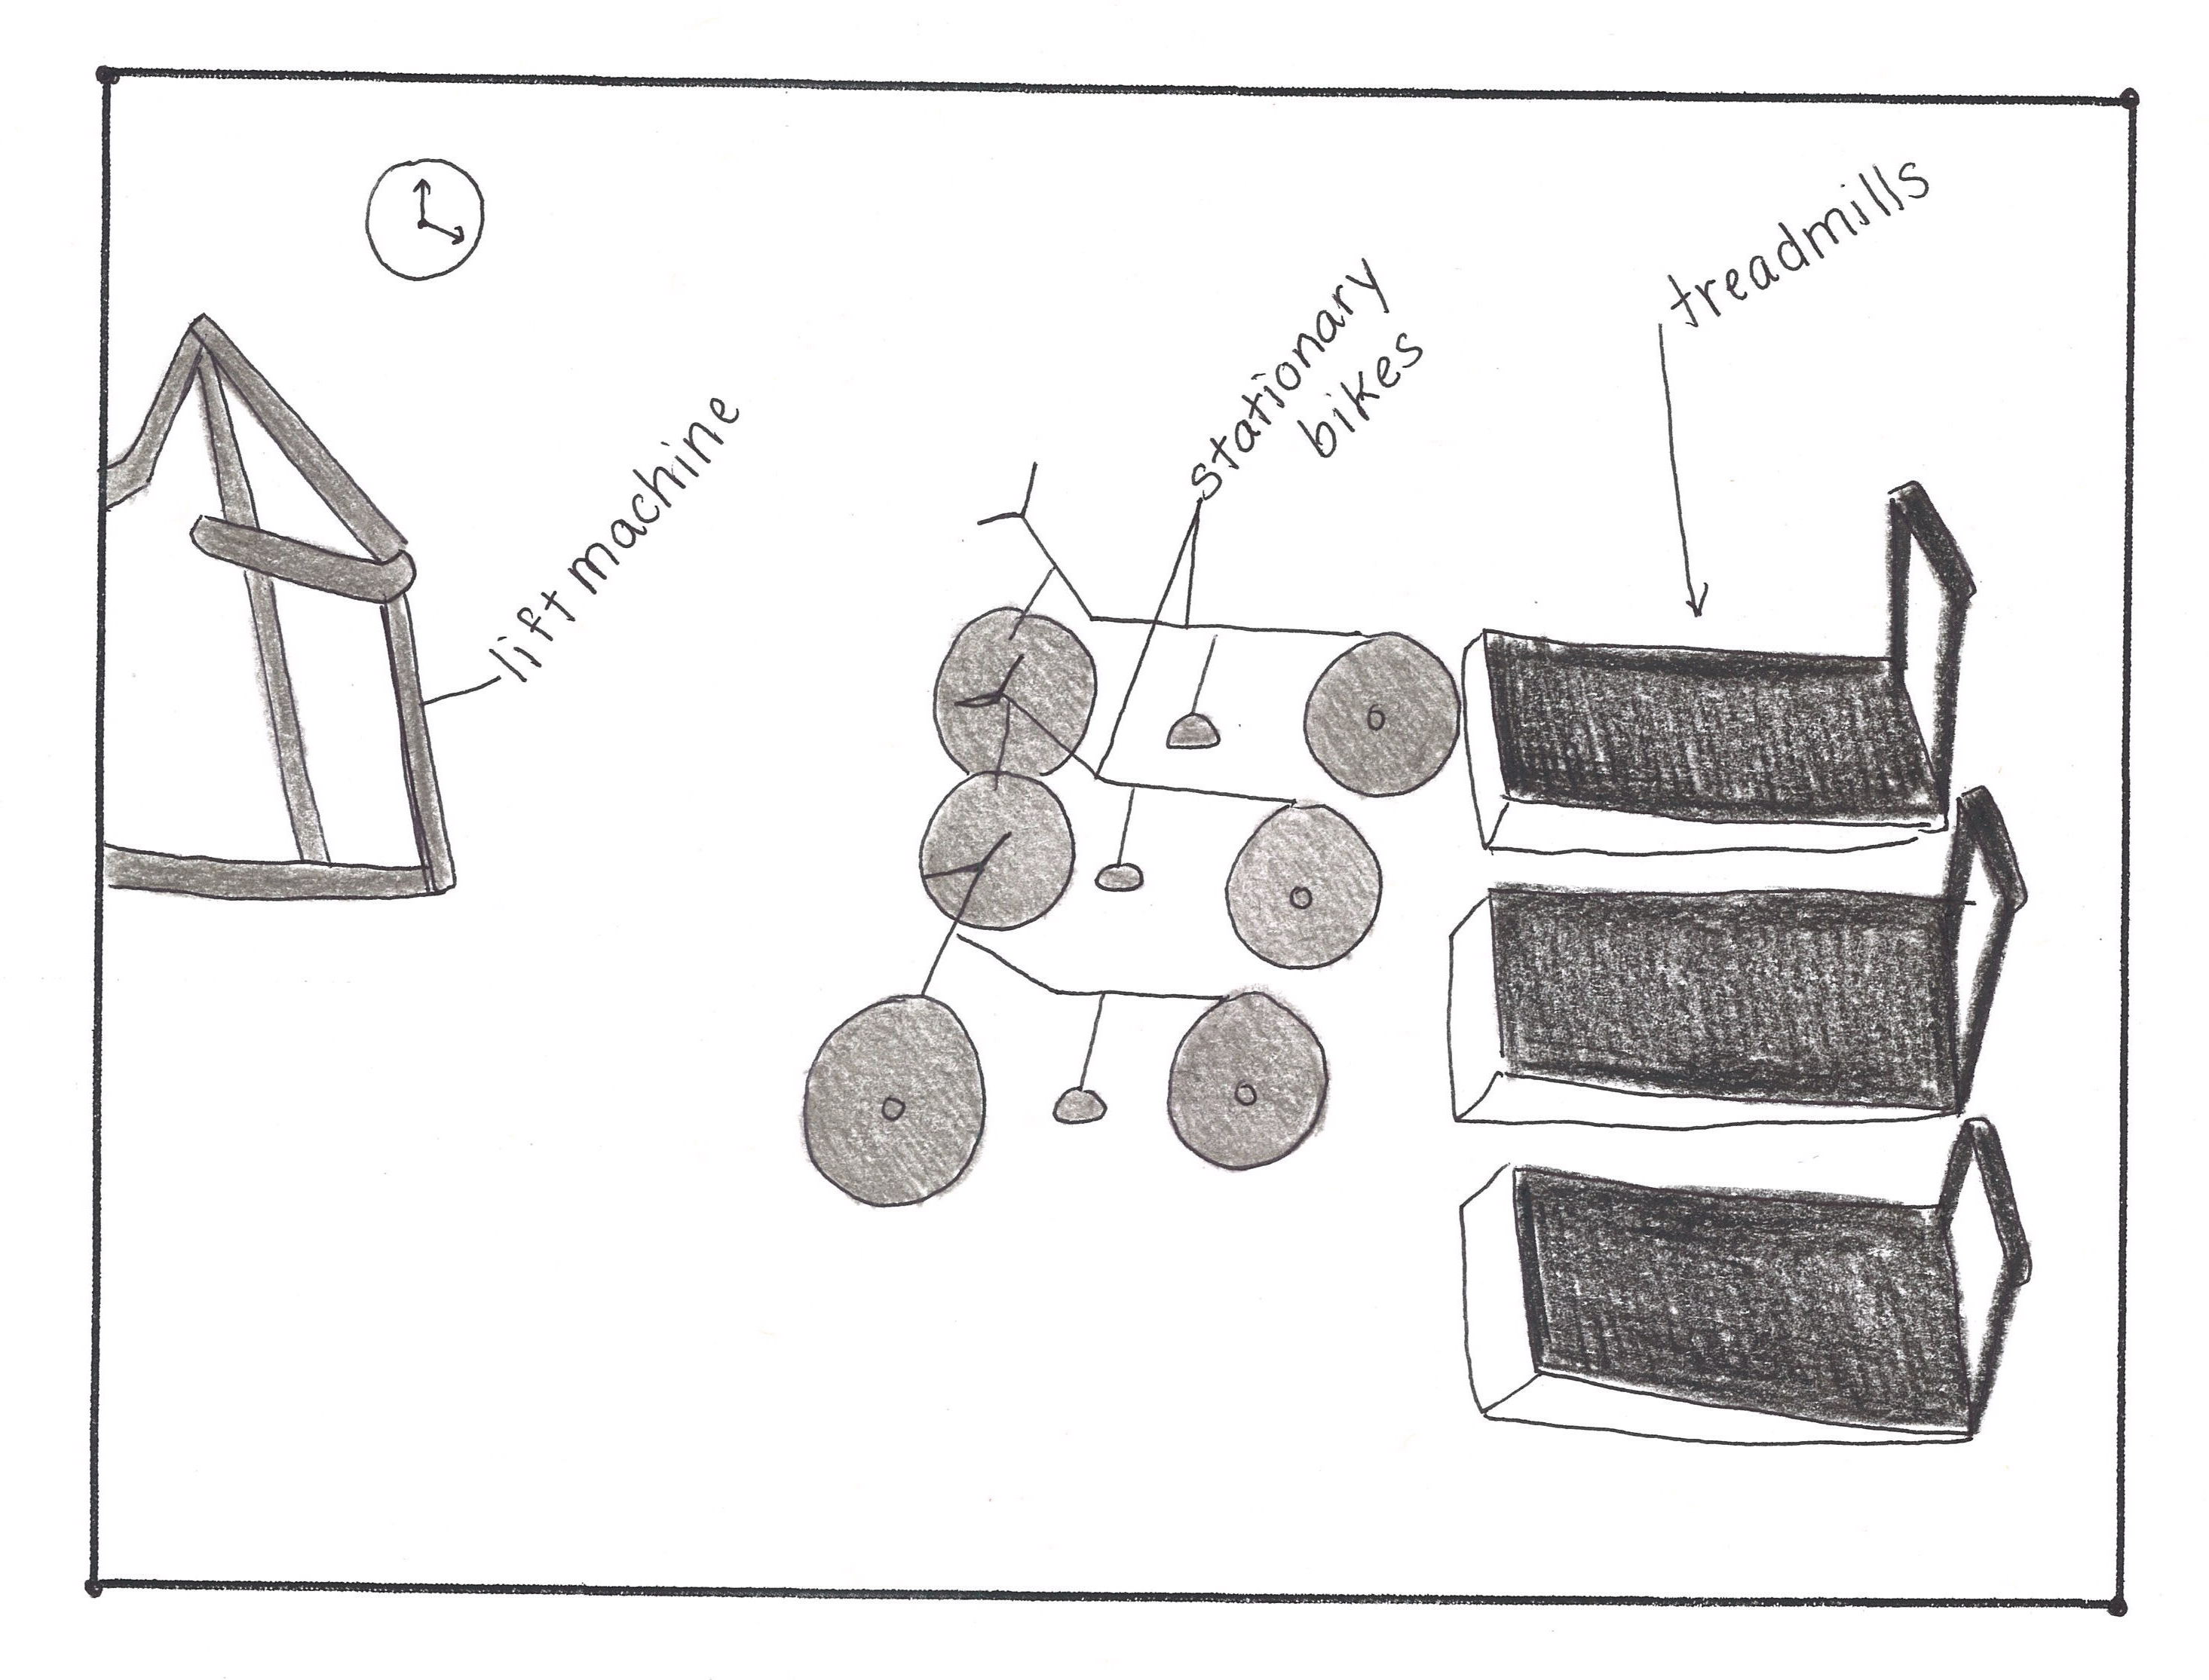 lift machine
stationary
bikes
treadmills